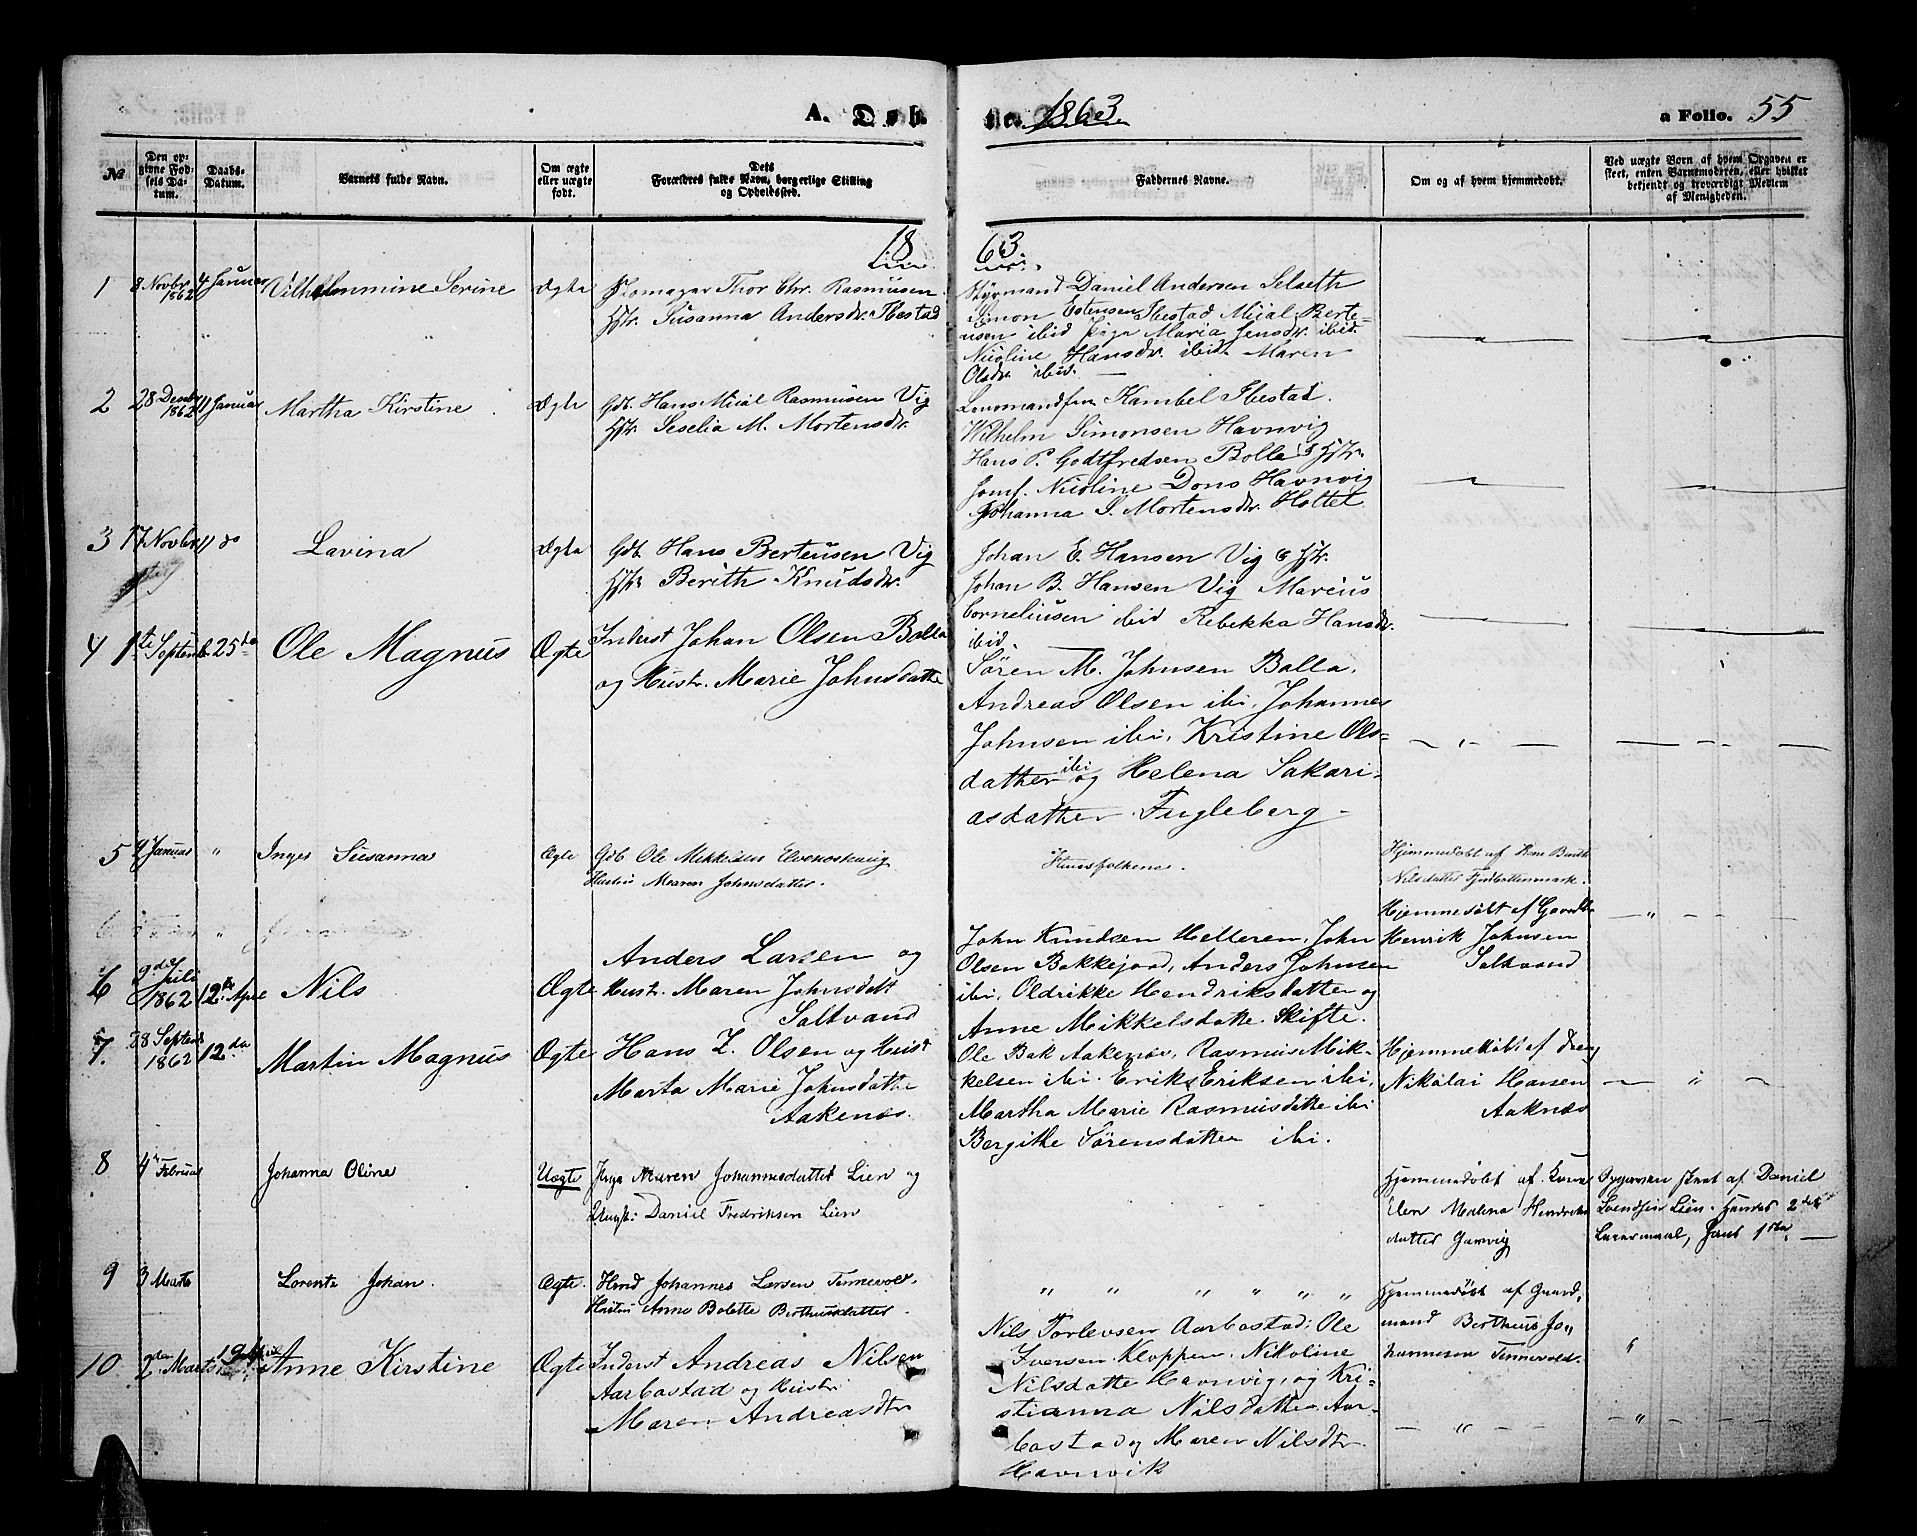 A. Døb-
te. 1863
a Folio. 55
№
Den op-
givne Fød-
sels Da-
tum.
Daabs-
Datum.
Barnets fulde Navn.
Om ægte
eller uægte
født.
Dets
Forældres fulde Navn, borgerlige Stilling
og Opholdssted.
Faddernes Navne.
Om og af hvem hjemmedøbt.
Ved uægte Børn af hvem Opgaven er
skeet, enten Barnemoderen, eller hvilket
bekjendt og troværdigt Medlem
af Menigheden.
1863.
1
8 Novbr
1862
4 Januar
Vilhelmmine Serine
Ægte
Skomager Thor Chr. Rasmusen
Hstr. Susanna Andersdr. Ibestad
Styrmand Daniel Andersen Selseth
Simon Estensen Ibestad Mical Berte-
usen ibid Pige Maria Jensdr. ibid.
Nicoline Hansdr. ibid. Maren
Olsdr. ibid.
2
28 Decmbr
1862
11 Januar
Martha Kirstine
Ægte
Gdb. Hans Mical Rasmusen Vig
Hstr Seselia M. Mortensdr.
Lensmandsfru Kambel Ibestad.
Wilhelm Simonsen Havnvig
Hans P. Godtfredsen Bolla & Hstr.
Jomf. Nicoline Dons Havnvig
Johanna S. Mortensdr. Holtet
3
17 Novbr
11 do
Lavina
Ægte
Gdb. Hans Berteusen Vig
Hstr Berith Knudsdr.
Johan E. Hansen Vig & Hstr.
Johan B. Hansen Vig Marcus
Corneliusen ibid Rebekka Hansdr.
ibid.
4
1te Septemb.
25de
Ole Magnus
Ægte
Inderst Johan Olsen Bolla
og Hustr. Marie Johnsdatte
Søren M. Johnsen Bolla,
Andreas Olsen ibi, Johannes
Johnsen ibi, Kristine Ols-
datter ibi og Helena Sakari-
asdatter Fugleberg
5
9 Januar
"
Inger Susanna
Ægte
Gdb Ole Mikkelsen Elvenoskaug
Hustru Maren Johnsdatter.
Huusfolkene.
Hjemmedøbt af Kone Berith
Nilsdatter Fjordbottenmark.
6
9de Juli
1862
12te Apr
Nils
Ægte
Anders Larsen og
Hustr. Maren Johnsdatt
Saltvand
John Knudsen Helleren, John
Olsen Bakkejord, Anders Johnsen
ibi, Oldrikke Hendriksdatter og
Anne Mikkelsdatte Skifte.
Hjemmedøbt af Gaardb
Henrik Johnsen
Saltvand
7.
28 Septemb
1862
12 da
Martin Magnus
Ægte
Hans Z. Olsen og Hustr
Marta Marie Johnsdatte
Aakenæs.
Ole Bak Aakenæs, Rasmus Mik-
kelsen ibi. Eriks Eriksen ibi,
Martha Marie Rasmusdatte ibi
Bergithe Sørensdatter ibi.
Hjemmedøbt af Dreng
Nikolai Hansen
Aaknæs
8
4 Februar
Johanna Oline
Uægte
Pige Maren Johannesdatter Lien og
Ungk: Daniel Fredriksen Lien
Hjemmedøbt af Kone
Elen Malena Hendriks
datter Gavvig
Opgaven skeet af Daniel
Svendsen Lien. Hendes 2det
Leiermaal, Hans 1ste
9
3 Marts
Lorents Johan.
Ægte.
Hmd Johannes Larsen Tennevold.
Hustru Anne Bolette Berthusdatter.
Hjemmedøbt af Gaard,
mand Berthus Jo,
hannesen Tennevold.
10
2den Marts
19
Anne Kirstine
Ægte
Inderst Andreas Nilsen
Aarbostad og Hustr:
Maren Andreasdtr
Nils Torlevsen Aarbostad; Ole
Iversen Kloppen. Nikoline
Nilsdatte Havnvig, og Kri-
stianna Nilsdatter Aar-
bostad og Maren Nilsdtr.
Havnvik